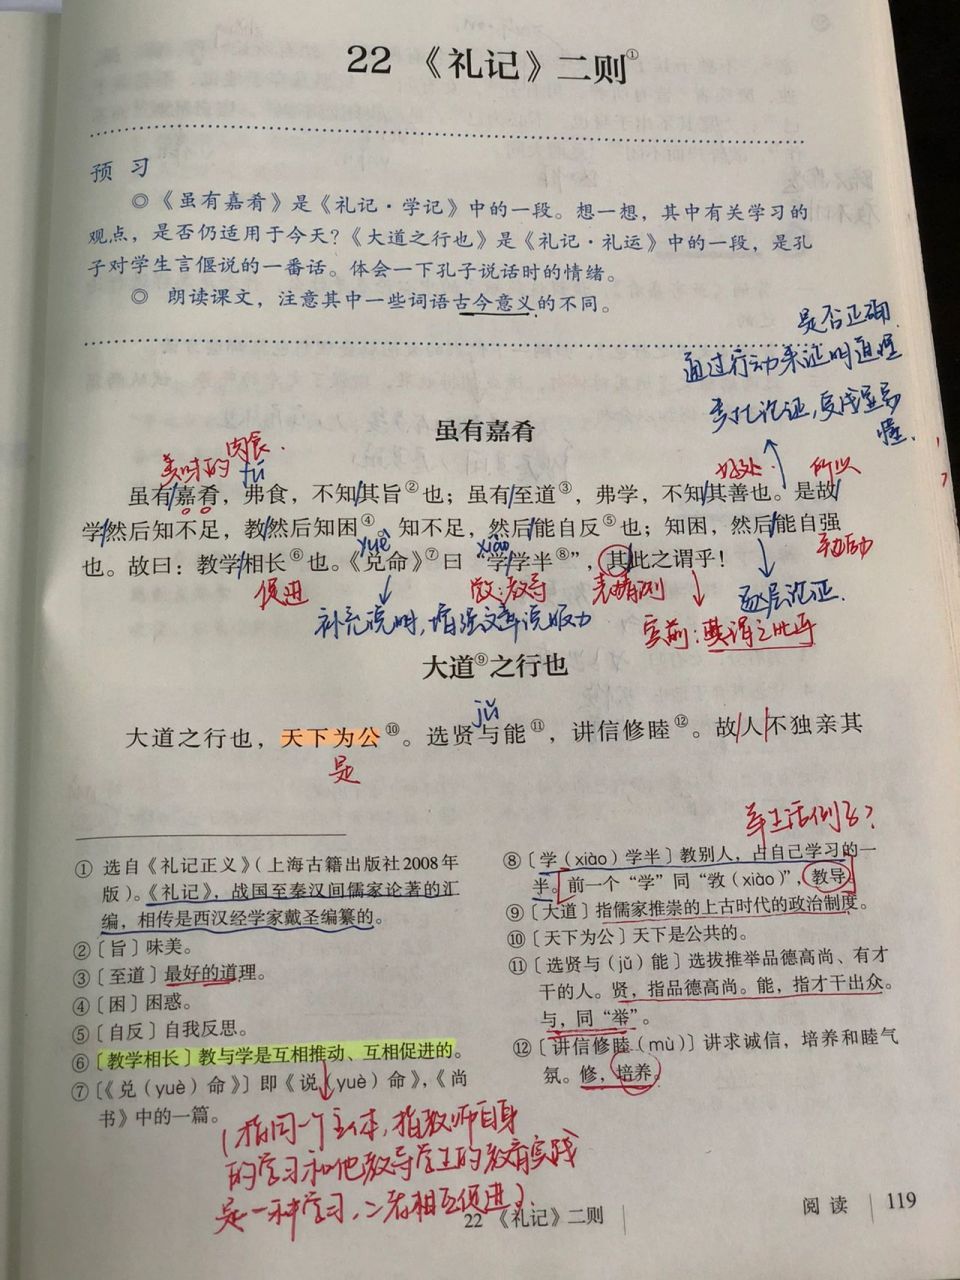 22 《礼记》二则①
预 习
◎《虽有嘉肴》是《礼记·学记》中的一段。想一想，其中有关学习的
观点，是否仍适用于今天？《大道之行也》是《礼记·礼运》中的一段，是孔
子对学生言偃说的一番话。体会一下孔子说话时的情绪。
◎ 朗读课文，注意其中一些词语古今意义的不同。
是否正确
通过行动来证明道理
类比论证，变浅显易
懂.
虽有嘉肴
美味的 肉食. fú 好处 所以
虽有/嘉肴，弗食，不知/其旨②也；虽有/至道③，弗学，不知/其善也。是故/
学/然后知不足，教/然后知困④ 知不足，然后/能自反⑤也；知困，然后/能自强
yuè xiào
也。故曰：教学/相长⑥也。《兑命》⑦曰“学/学半⑧”，其/此之谓乎！
促进 教导 表猜测 逐层论证.
补充说明，增强文章说服力 宾前：其谓之此乎
大道⑨之行也
jǔ
大道之行也，天下为公⑩。选贤与能⑪，讲信修睦⑫。故/人/不独亲其
是
举生活例子？
① 选自《礼记正义》（上海古籍出版社2008年
版）。《礼记》，战国至秦汉间儒家论著的汇
编，相传是西汉经学家戴圣编纂的。
②〔旨〕味美。
③〔至道〕最好的道理。
④〔困〕困惑。
⑤〔自反〕自我反思。
⑥〔教学相长〕教与学是互相推动、互相促进的。
⑦〔《兑（yuè）命》〕即《说（yuè）命》，《尚
书》中的一篇。
⑧〔学（xiào）学半〕教别人，占自己学习的一
半。前一个“学”同“敩（xiào）”，教导。
⑨〔大道〕指儒家推崇的上古时代的政治制度。
⑩〔天下为公〕天下是公共的。
⑪〔选贤与（jǔ）能〕选拔推举品德高尚、有才
干的人。贤，指品德高尚。能，指才干出众。
与，同“举”。
⑫〔讲信修睦（mù）〕讲求诚信，培养和睦气
氛。修，培养。
（指同一个主体，指教师自身
的学习和他教导学生的教育实践
是一种学习，二者相互促进）.
22 《礼记》二则
阅 读 119